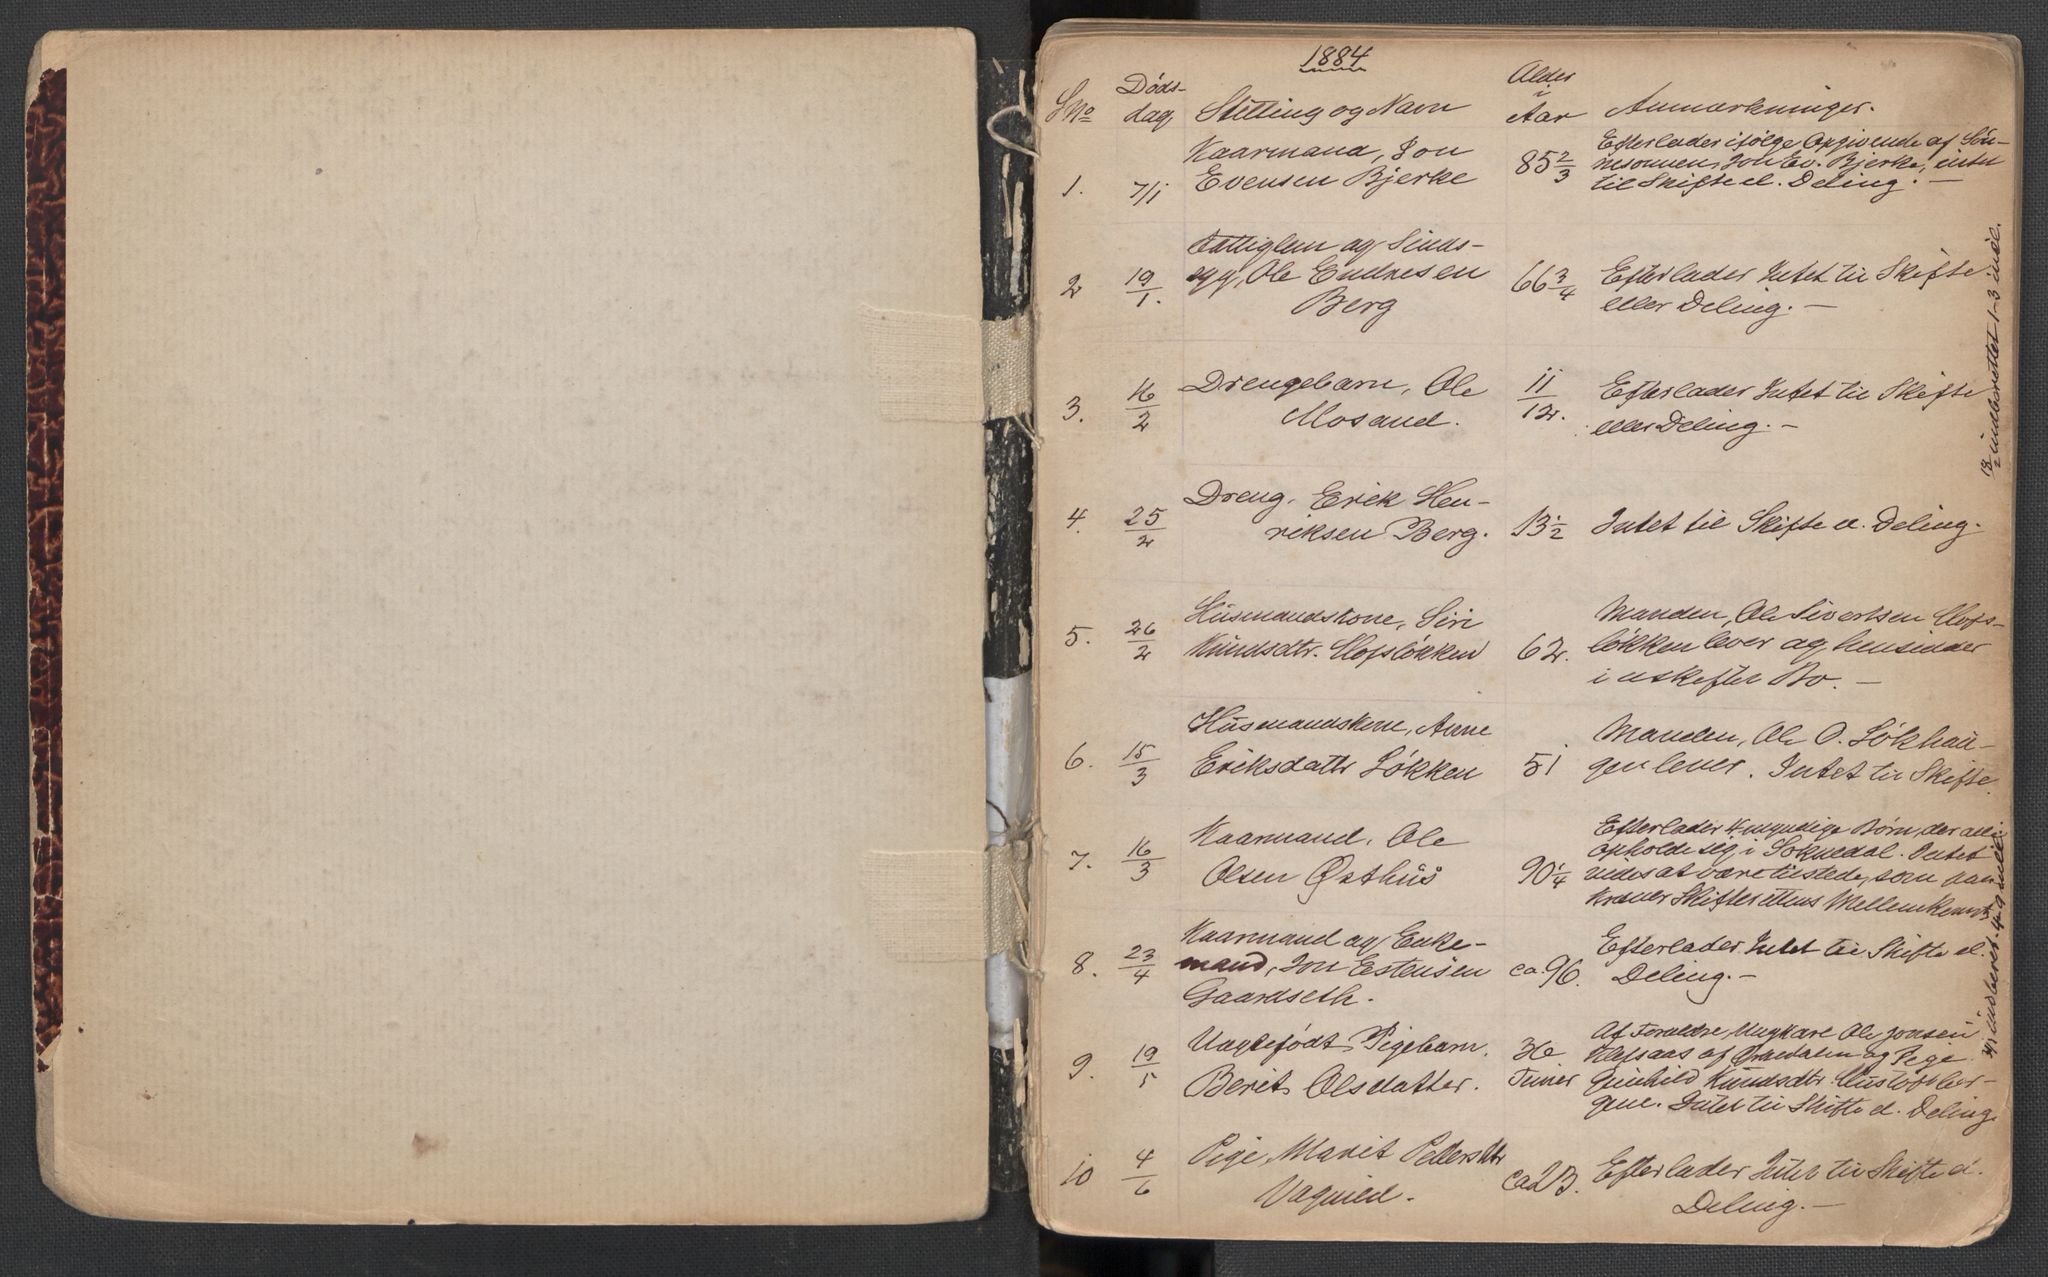 1884
S No Døds- dag Stilling og Navn Alder i Aar Anmærkninger.
1. 7/1 Kaarmand, Jon
Evensen Bjerke
85 2/3
Efterlader ifølge Opgivende af Søn-
nesønnen, Jon Ev. Bjerke, intet
til Skifte el. Deling. —
2 19/1. Fattiglem og Sinds-
syg, Ole Endresen
Berg
66 3/4
Efterlader Intet til Skifte
eller Deling. —
3. 16/2 Drengebarn, Ole
Mosand.
11/12.
Efterlader Intet til Skifte
eller Deling. —
13/2 indberettet 1-3 incl.
4. 25/2 Dreng, Erick Hen-
riksen Berg.
13 1/2
Intet til Skifte el. Deling.
5. 26/2 Husmandskone, Siri
Knudsdtr. Hofsløkken
62.
Manden, Ole Sivertsen Hofs-
løkken lever og hensidder
i uskiftet Bo. —
6. 15/3 Husmandskone, Anne
Eriksdattr Løkken
51
Manden, Ole O. Løkhau-
gen lever. Intet til Skifte.
7. 16/3 Kaarmand, Ole
Olsen Østhus
90 1/4
Efterlader 4 myndige Børn, der alle
opholde sig i Soknedal. Intet
vides at være tilstede, som paa-
kræver Skifterettens Mellemkomst
8. 23/4 Kaarmand og Enke-
mand, Jon Estensen
Gaardseth.
ca. 96.
Efterlader Intet til Skifte el.
Deling. —
9. 19/5 Uægtefødt Pigebarn,
Berit Olsdatter.
36
Timer
Af Forældre, Ungkarl Ole Jonsen
af og Pige
Gunhild Knudsdtr.
Intet til Skifte el. Deling.
indberet. 4-9 incl.
10 4/6 Pige, Marit Pedersdtr
Vagnild.
ca 23.
Efterlader Intet til Skifte el.
Deling. —